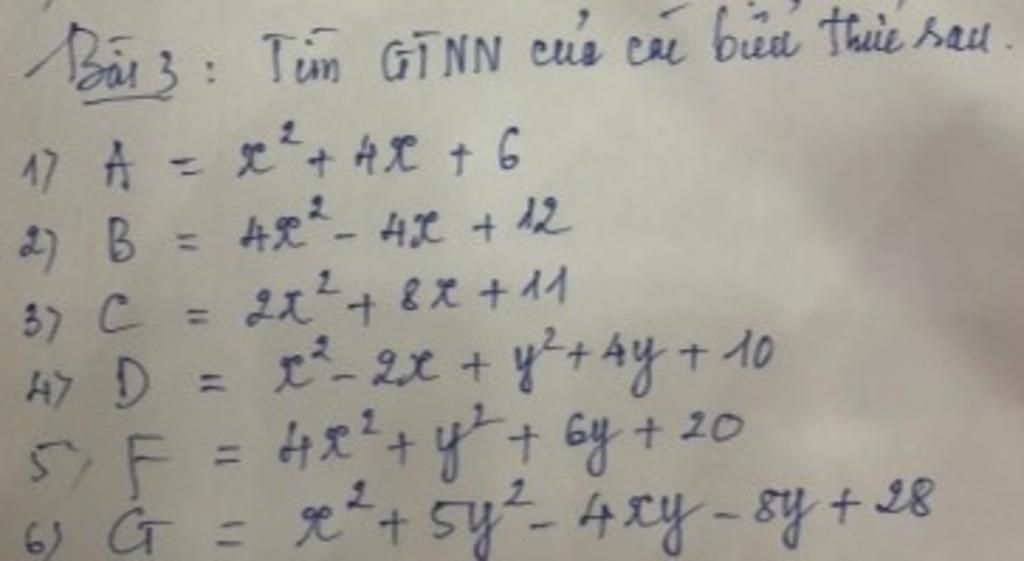 Bài 3 : Tìm GTNN của các biểu thức sau.
1) A = x² + 4x + 6
2) B = 4x² - 4x + 12
3) C = 2x² + 8x + 11
4) D = x² - 2x + y² + 4y + 10
5) F = 4x² + y² + 6y + 20
6) G = x² + 5y² - 4xy - 8y + 28